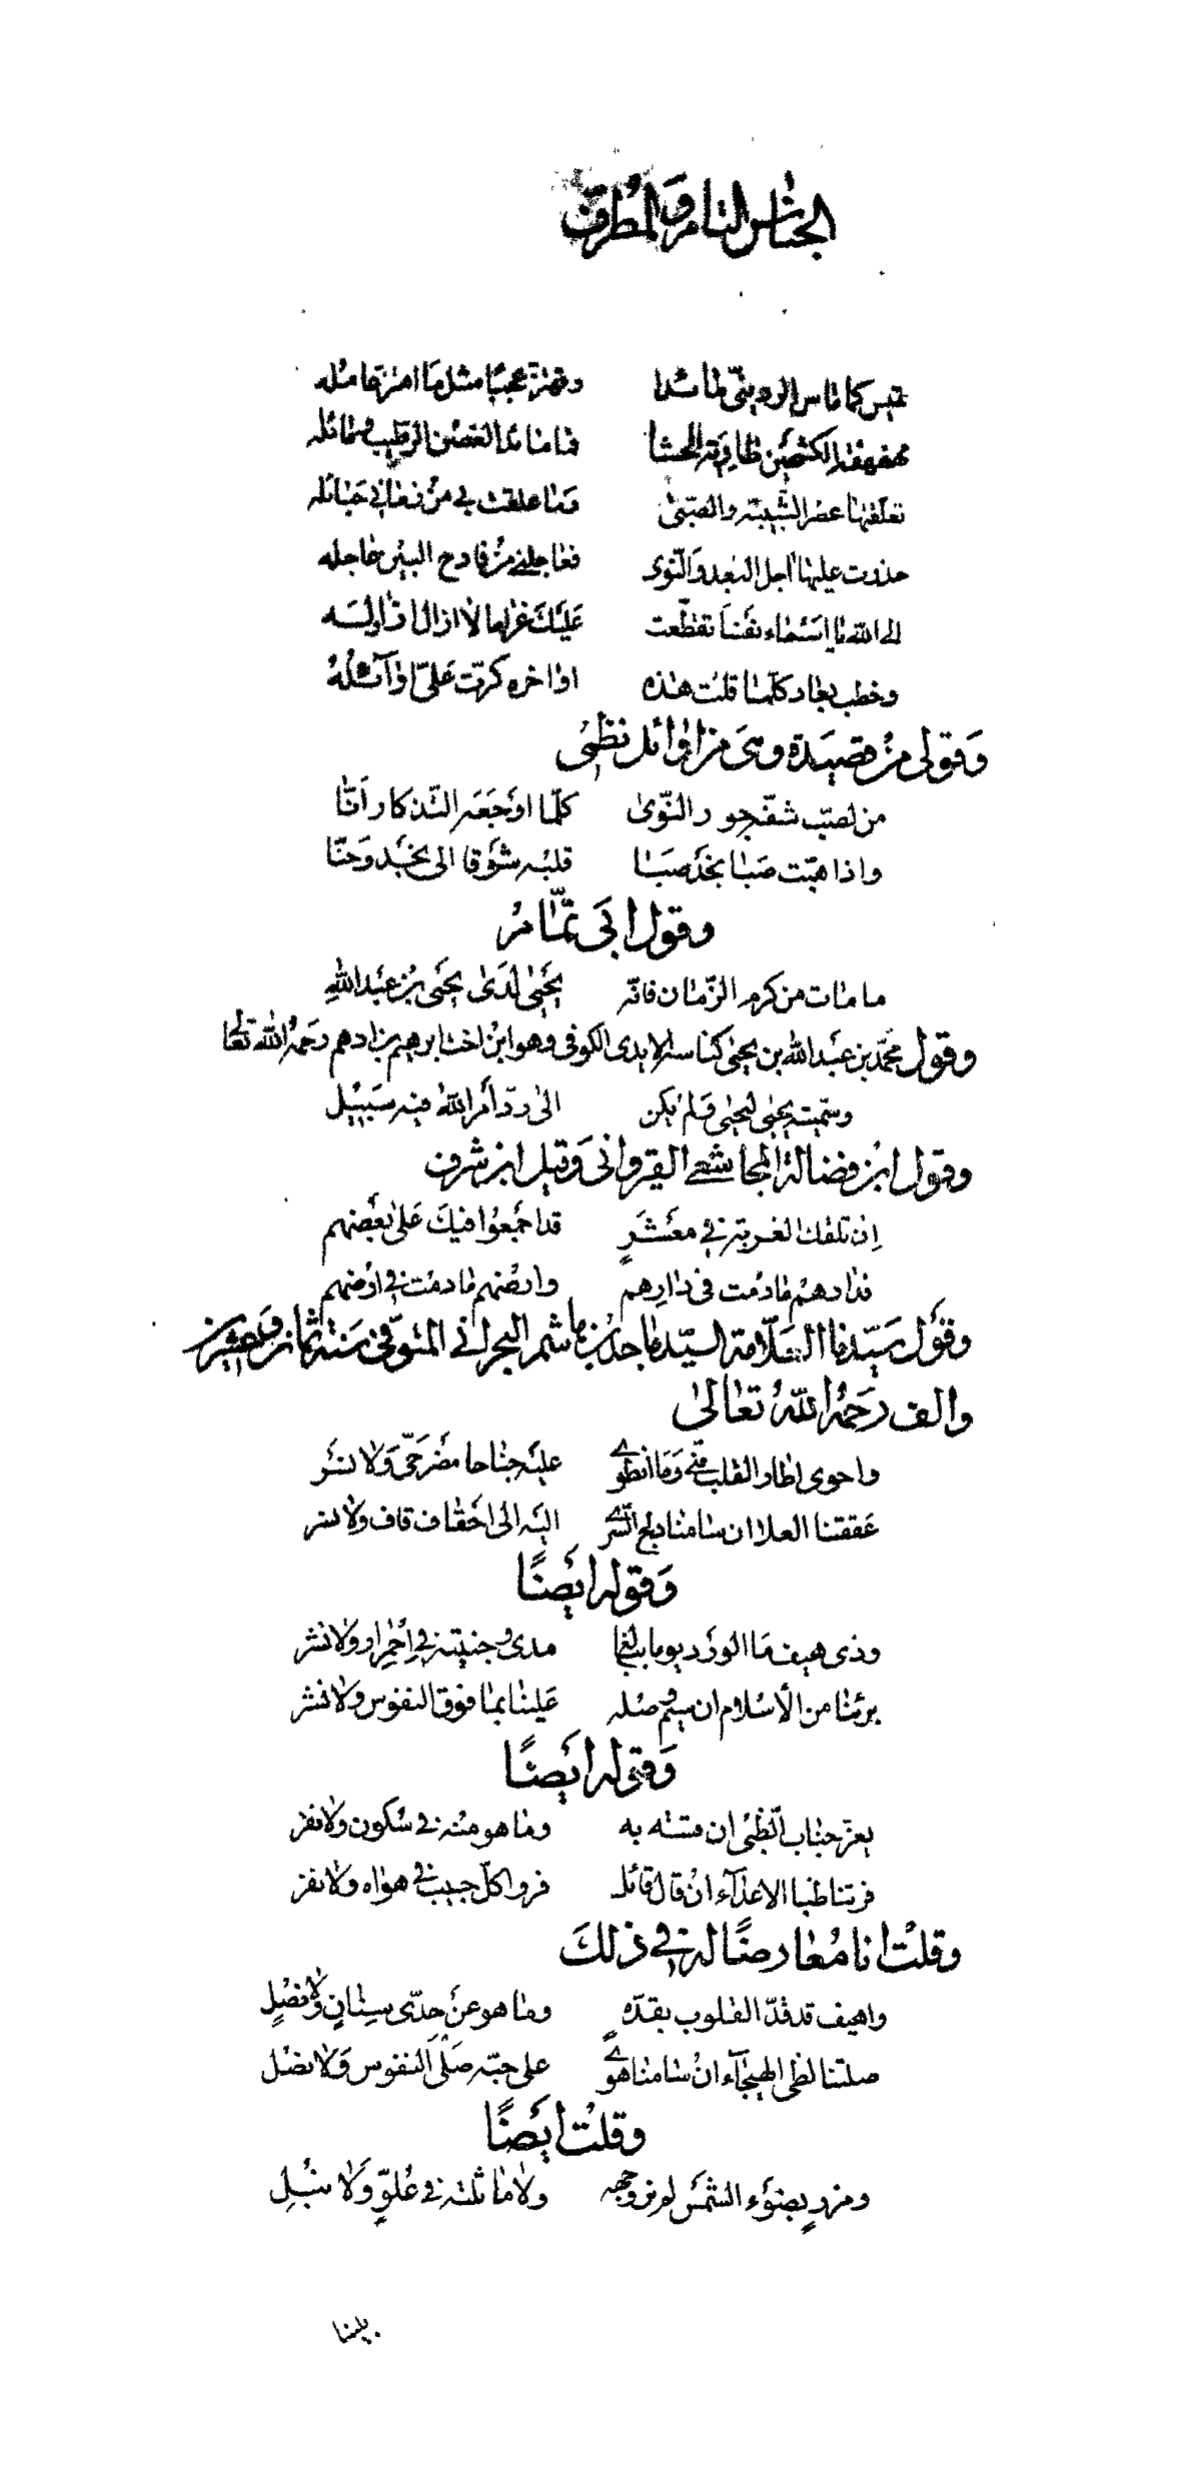 الجناس التام والمطرف
تميس كما ماس الردينى مائدا وتهتز عجبا مثل ما اهتز عامله
مهفهفة الكشحين طاوية الحشا فما مائد الغصن الرطيب ومائله
تعلقتها عصر الشبيبة والصبى وما علقت بي من زماني حبائله
حذرت عليها اجل البعد والنوى فعاجلني من فادح البين عاجله
الى الله يا اسماء نفسا تقطعت عليك غراما لا ازال ازاوله
وخطب بعاد كلما قلت هذه اواخره كرت على اوائله
وقولى من قصيدة وهى من اوائل نظمى
من لصب شفه جور النوى كلما اوجعه التذكار أنا
واذا هبت صبا نجد صبا قلبه شوقا الى نجد وحنا
وقول ابى تمام
ما مات من كرم الزمان فانه يحيى لدى يحيى بن عبد الله
وقول محمد بن عبد الله بن يحيى كناسه الاسدى الكوفى وهو ابن اخت ابرهيم بن ادهم رحمه الله تعالى
وسميته يحيى ليحيى فلم يكن الى رد أمر الله فيه سبيل
وقول ابن فضالة المجاشعى القيروانى وقيل ابن شرف
ان تلقك الغربة في معشر قد اجمعوا فيك على بعضهم
فدارهم ما دمت فى دارهم وارضهم ما دمت فى ارضهم
وقول سيدنا العلامة السيد ماجد بن هاشم البحرانى المتوفى سنة ثمان وعشرين
والف رحمه الله تعالى
واحوى اطار القلب منى وما انطوى عليه جناحا مضرحى ولا نسر
عققنا العلا ان سامنا دلج السرى اليه الى احقاف قاف ولا نسر
وقوله أيضا
وذى هيف ما الورد يوما ببالغ مدى وجنتيه فى احمرار ولا نشر
برئنا من الأسلام ان سيم وصله علينا بما فوق النفوس ولا نشر
وقوله أيضا
يعز جناب الظبى ان قسته به وما هو منه فى سكون ولا نفر
فرتنا ظبا الاعداء ان قال قائل فروا كل جيب فى هواه ولا نفر
وقلت انا معارضا له في ذلك
واهيف قد قد القلوب بقده وما هو عن حدى سنان ولا فضل
صلتنا لظى الهيجاء ان سامنا هوى على حبه صلى النفوس ولا نصل
وقلت أيضا
ومزر بضوء الشمس لون وجهه ولا ماثلته فى علو ولا نبل